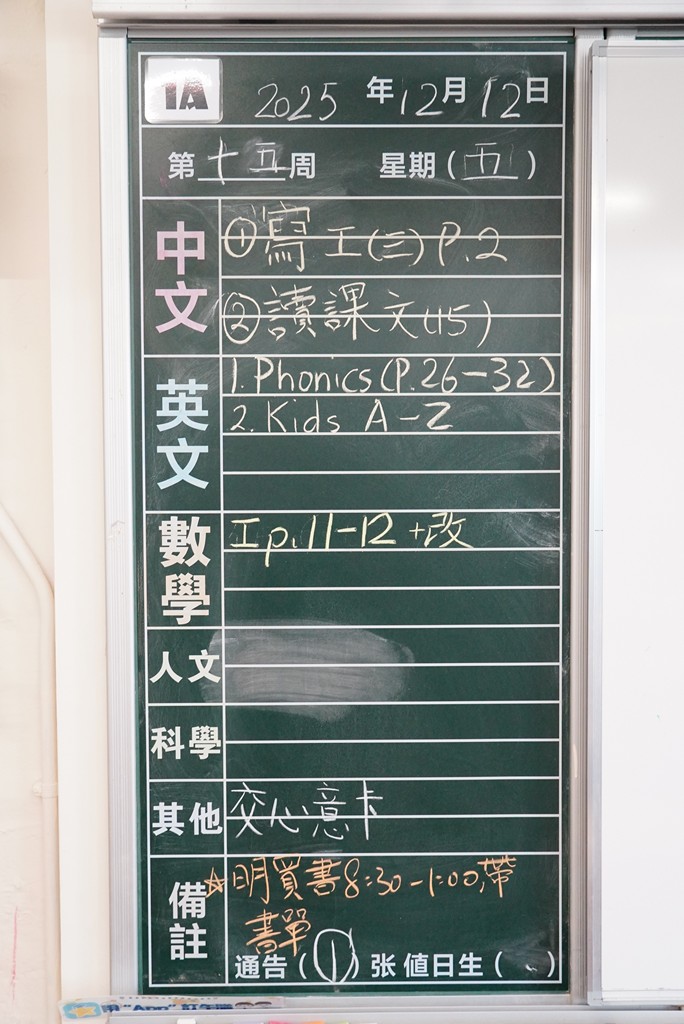 1A 2025 年 12 月 12 日
第 十五 周 星期 ( 五 )
中文
①寫工(三) P.2
②讀課文(15)
英文
1. Phonics (P.26-32)
2. Kids A-Z
數學
工p.11-12 +改
人文
科學
其他
交心意卡
備註
☆明買書8:30-1:00,帶
書單
通告 ( 1 ) 张 値日生 ( )